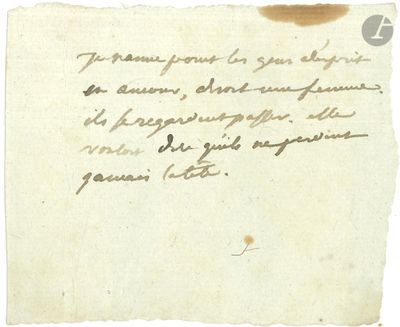 je n'aime point les gens d'esprit
en amour, disoit une femme.
ils se regardent passer. elle
vouloit dire qu'ils ne perdent
jamais la tête.